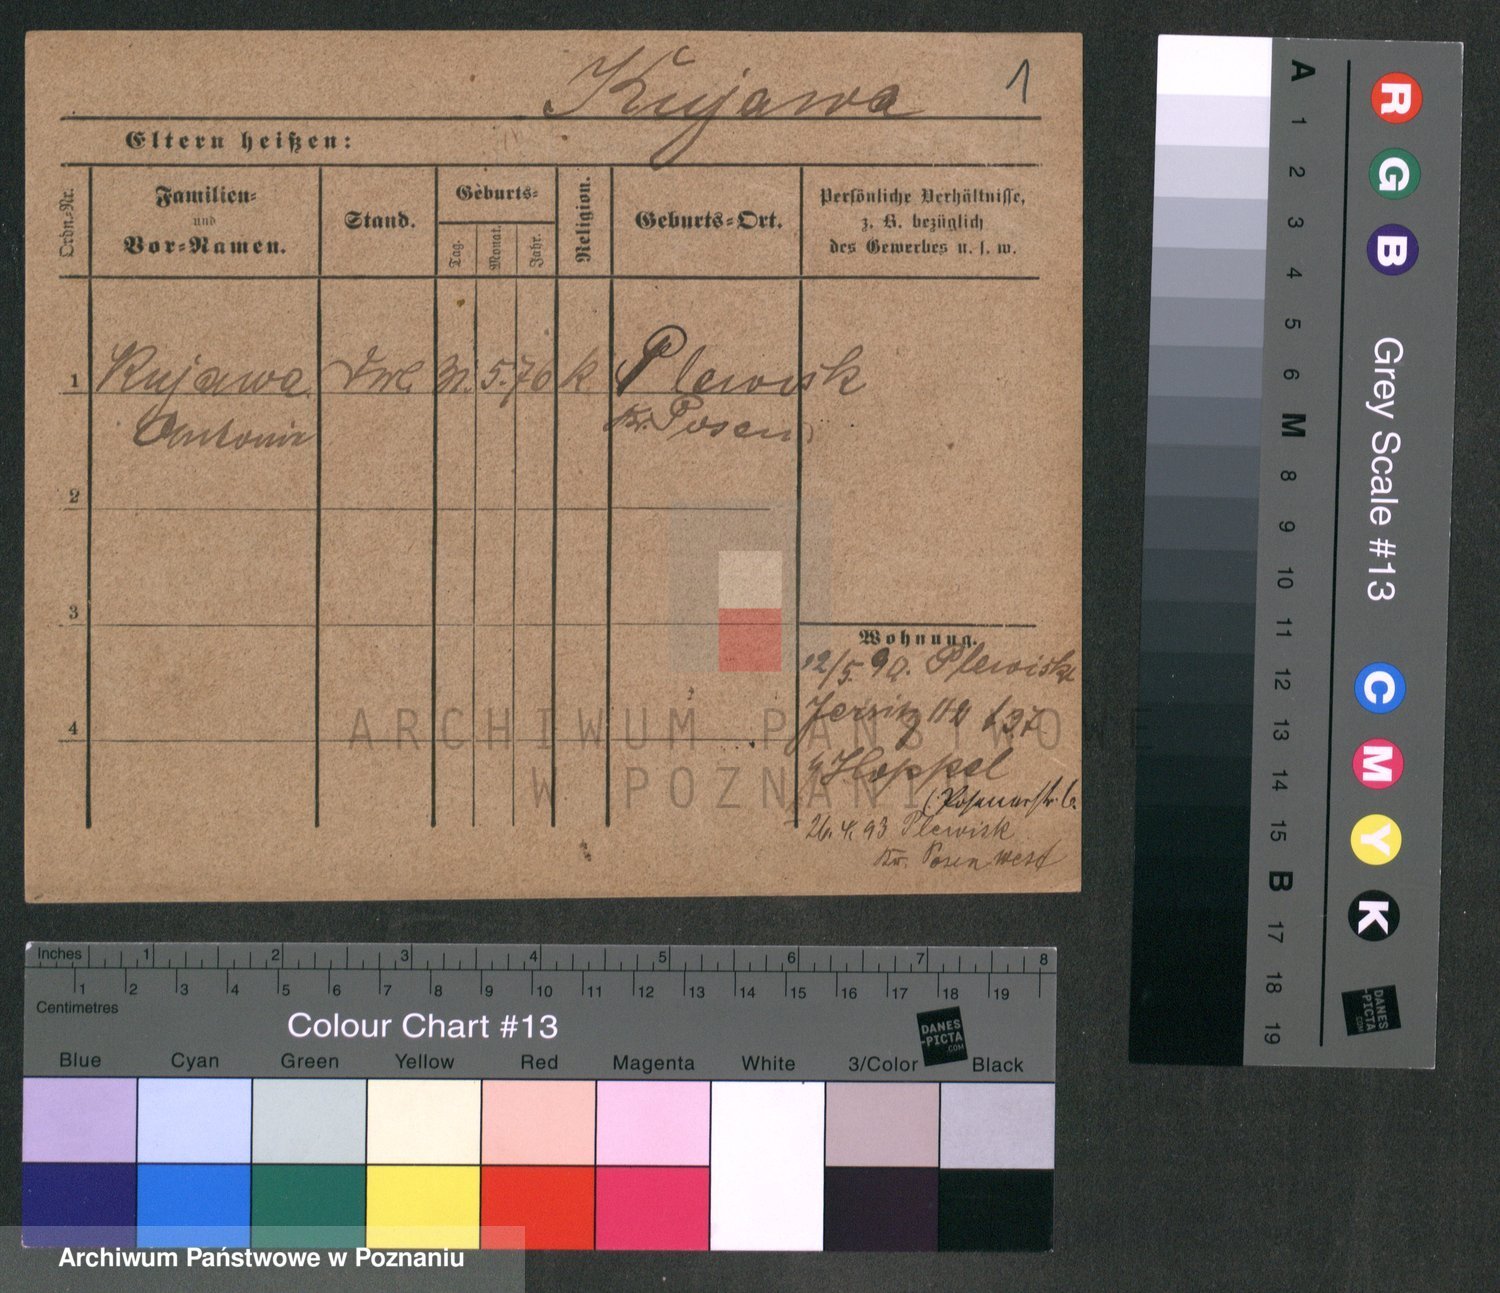 Kujawa 1
Eltern heißen:
Ordn.=Nr.
Familien=
und
Vor=Namen.
Stand.
Geburts=
Tag.
Monat.
Jahr.
Religion.
Geburts=Ort.
Persönliche Verhältnisse,
z. B. bezüglich
des Gewerbes u. s. w.
1 Kujawa 5. 76 k Plewisk
Kr. Posen
2
3
4
Wohnung.
12/5. 90. Plewisk
Jersitz 137
Hoppel
26. 4. 93 Plewisk
Kr. Posen West
ARCHIWUM PAŃSTWOWE
W POZNANIU
Inches 1 2 3 4 5 6 7 8
1 2 3 4 5 6 7 8 9 10 11 12 13 14 15 16 17 18 19
Centimetres
Colour Chart #13
DANES
-PICTA
.COM
Blue Cyan Green Yellow Red Magenta White 3/Color Black
Archiwum Państwowe w Poznaniu
A 1 2 3 4 5 6 M 8 9 10 11 12 13 14 15 B 17 18 19
R G B Grey Scale #13 C M Y K
DANES
-PICTA
.COM